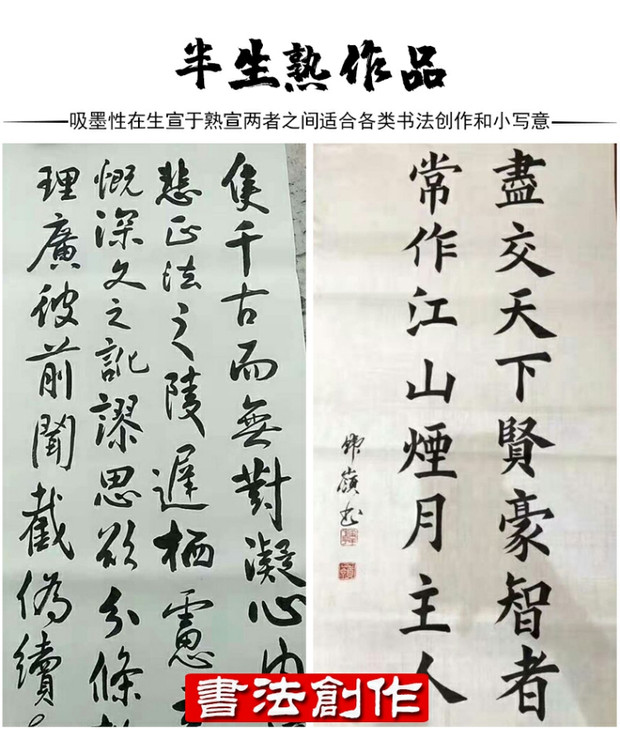 半生熟作品
吸墨性在生宣于熟宣两者之间适合各类书法创作和小写意
隻千古而無對凝心内
悲正法之陵遲栖慮
慨深文之訛謬思欲分條
理廣彼前聞截偽續
盡交天下賢豪智者
常作江山煙月主人
書法創作